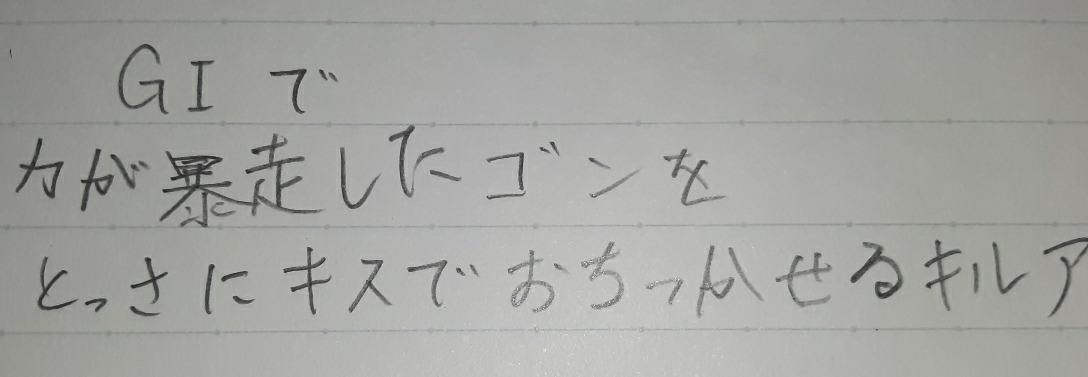 GIで
力が暴走したゴンを
とっさにキスでおちつかせるキルア